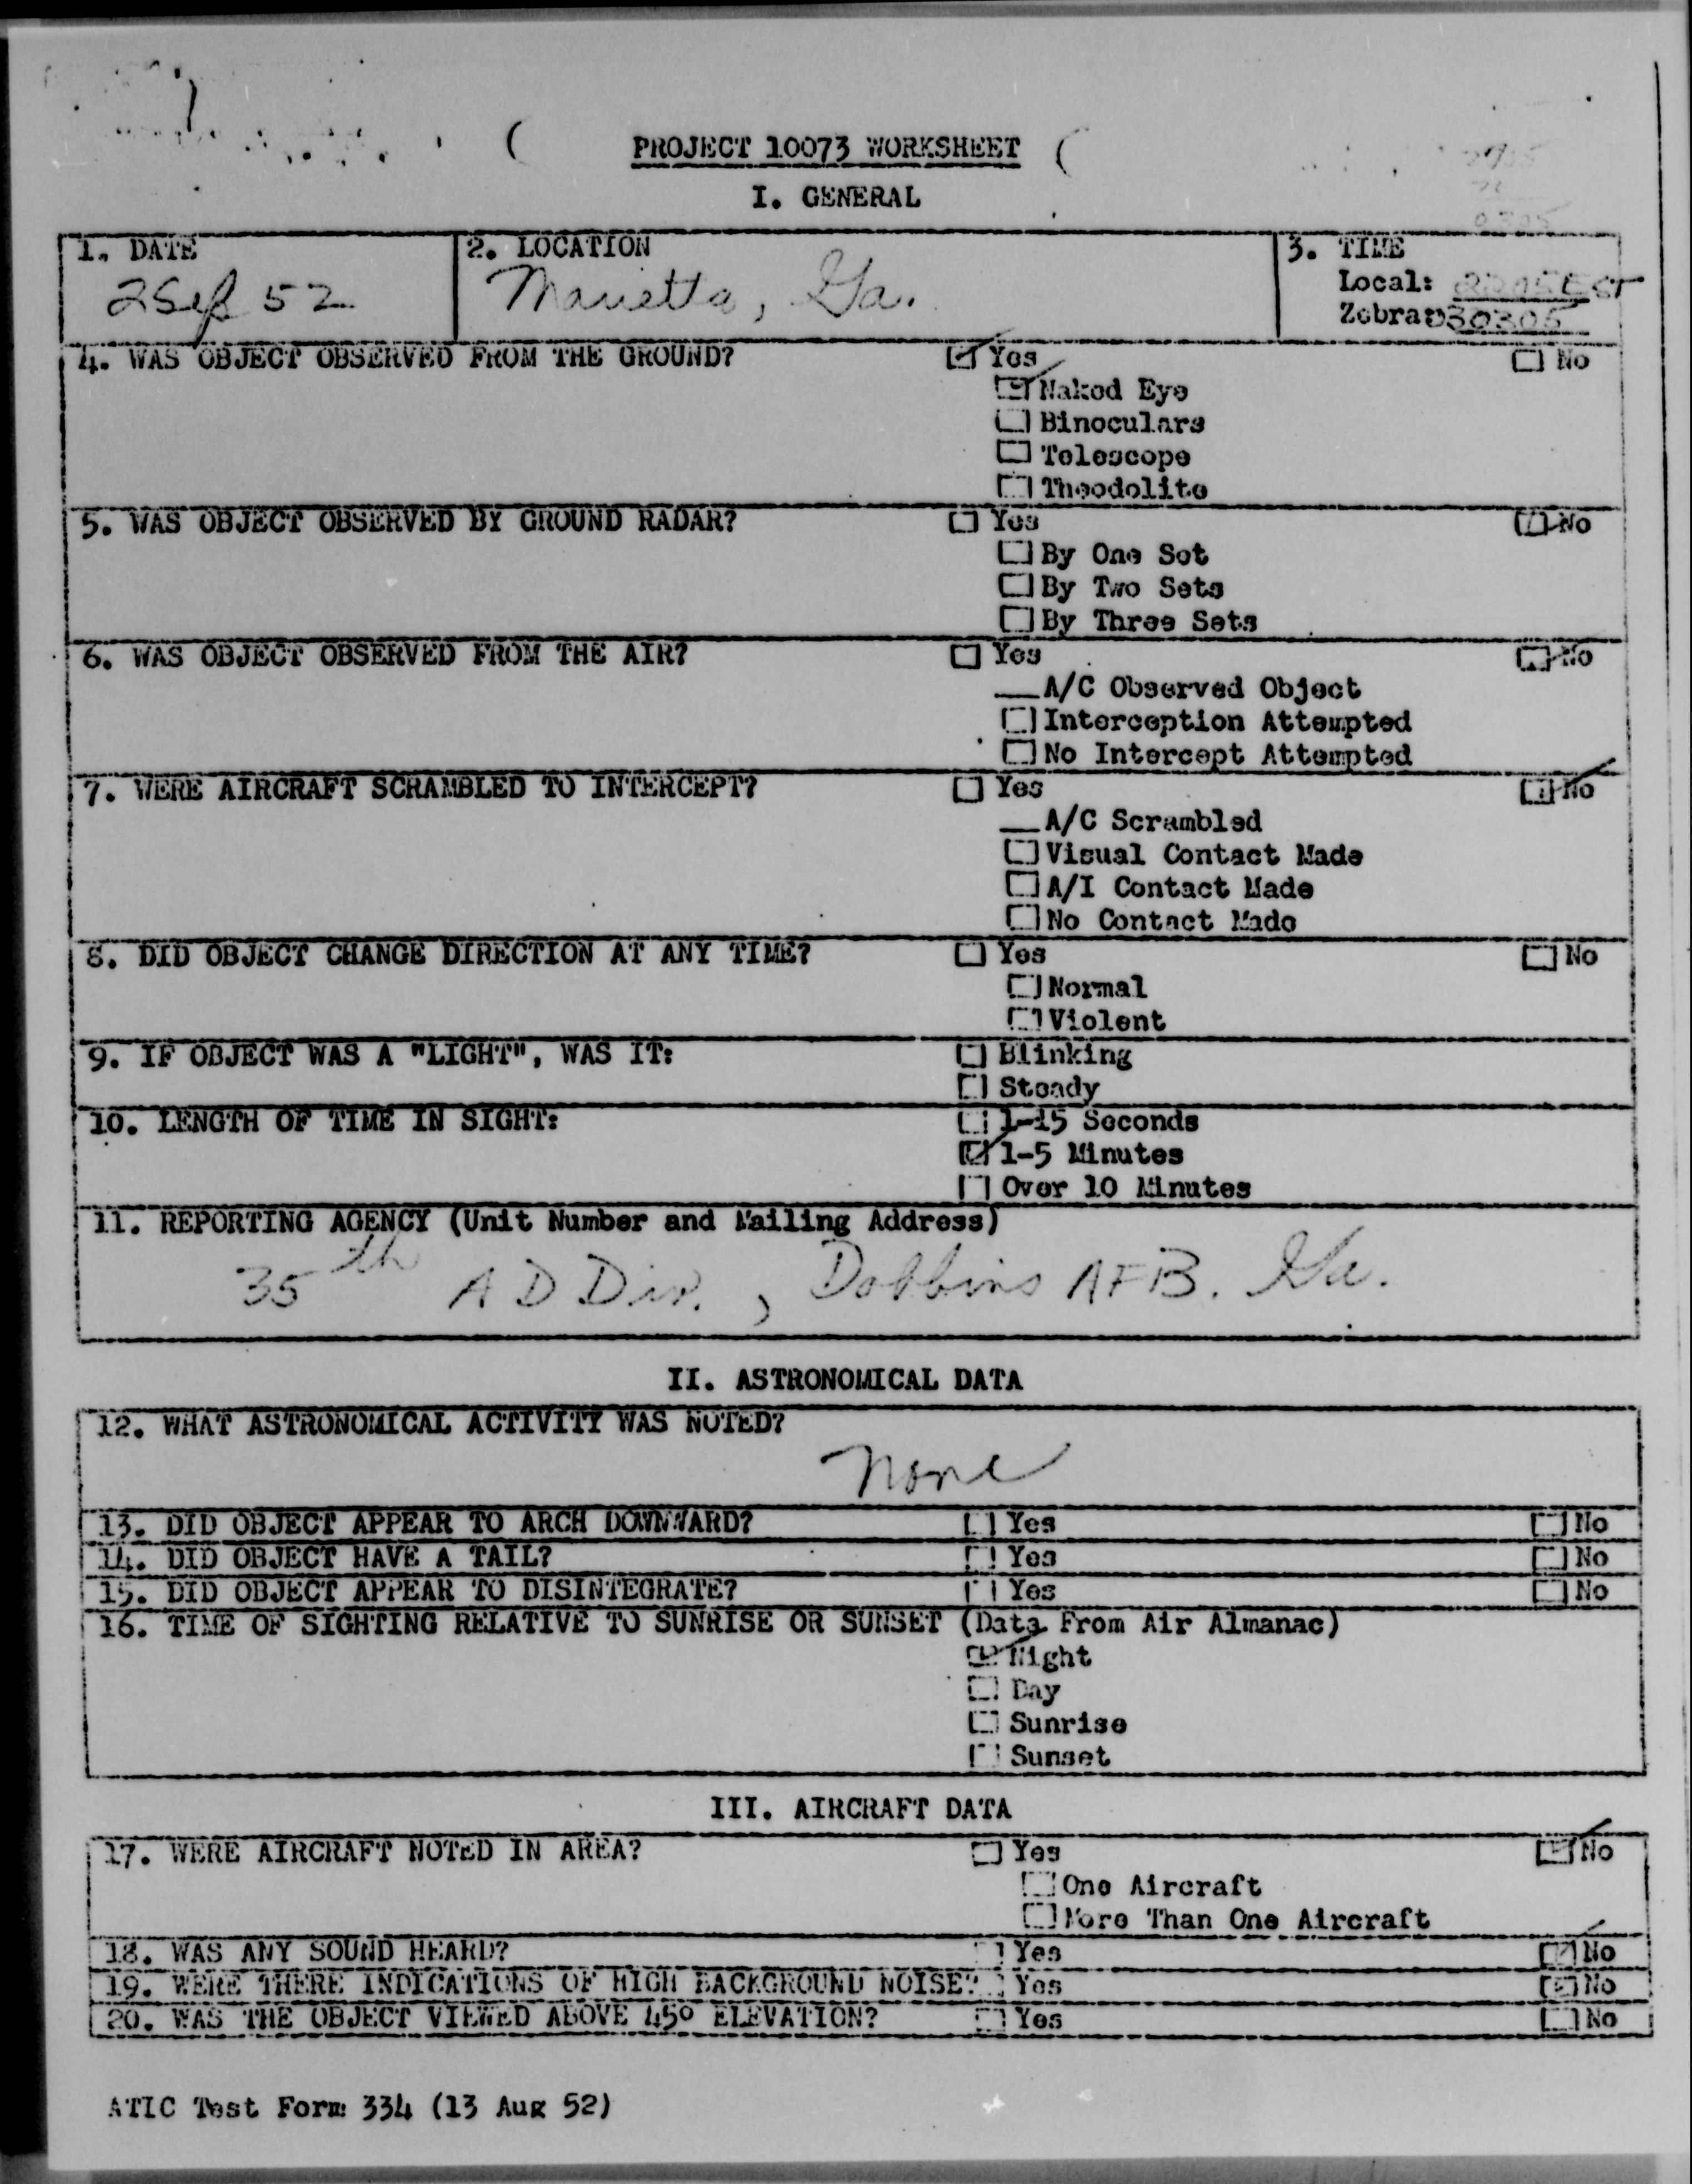 PROJECT 10073 WORKSHEET
I. GENERAL
1. DATE
2 Sep 52
2. LOCATION
Marietta, Ga.
3. TIME
Local: 2205 EST
Zebra: 030305
4. WAS OBJECT OBSERVED FROM THE GROUND?
☑ Yes
☐ No
☑ Naked Eye
☐ Binoculars
☐ Telescope
☐ Theodolite
5. WAS OBJECT OBSERVED BY GROUND RADAR?
☐ Yes
☑ No
☐ By One Set
☐ By Two Sets
☐ By Three Sets
6. WAS OBJECT OBSERVED FROM THE AIR?
☐ Yes
☑ No
__ A/C Observed Object
☐ Interception Attempted
☐ No Intercept Attempted
7. WERE AIRCRAFT SCRAMBLED TO INTERCEPT?
☐ Yes
☑ No
__ A/C Scrambled
☐ Visual Contact Made
☐ A/I Contact Made
☐ No Contact Made
8. DID OBJECT CHANGE DIRECTION AT ANY TIME?
☐ Yes
☐ No
☐ Normal
☐ Violent
9. IF OBJECT WAS A "LIGHT", WAS IT:
☐ Blinking
☐ Steady
10. LENGTH OF TIME IN SIGHT:
☐ 1-15 Seconds
☑ 1-5 Minutes
☐ Over 10 Minutes
11. REPORTING AGENCY (Unit Number and Mailing Address)
35th A D Div., Dobbins AFB. Ga.
II. ASTRONOMICAL DATA
12. WHAT ASTRONOMICAL ACTIVITY WAS NOTED?
None
13. DID OBJECT APPEAR TO ARCH DOWNWARD?
☐ Yes
☐ No
14. DID OBJECT HAVE A TAIL?
☐ Yes
☐ No
15. DID OBJECT APPEAR TO DISINTEGRATE?
☐ Yes
☐ No
16. TIME OF SIGHTING RELATIVE TO SUNRISE OR SUNSET (Data From Air Almanac)
☑ Night
☐ Day
☐ Sunrise
☐ Sunset
III. AIRCRAFT DATA
17. WERE AIRCRAFT NOTED IN AREA?
☐ Yes
☑ No
☐ One Aircraft
☐ More Than One Aircraft
18. WAS ANY SOUND HEARD?
☐ Yes
☑ No
19. WERE THERE INDICATIONS OF HIGH BACKGROUND NOISE?
☐ Yes
☑ No
20. WAS THE OBJECT VIEWED ABOVE 45° ELEVATION?
☐ Yes
☐ No
ATIC Test Form 334 (13 Aug 52)